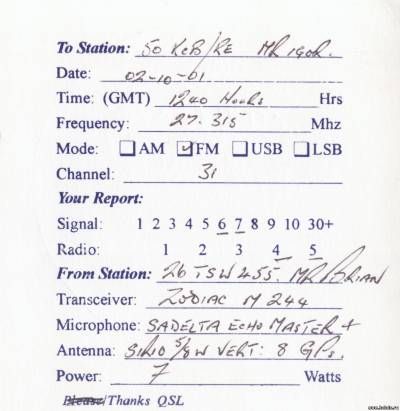 To Station: 50 KCB/RE MR IGOR.
Date: 02-10-01
Time: (GMT) 1240 Hours Hrs
Frequency: 27.315 Mhz
Mode: ☐ AM ☑ FM ☐ USB ☐ LSB
Channel: 31
Your Report:
Signal: 1 2 3 4 5 6 7 8 9 10 30+
Radio: 1 2 3 4 5
From Station: 26 TSW 455. MR BRIAN
Transceiver: ZODIAC M 244
Microphone: SADELTA ECHO MASTER +
Antenna: SIRIO 5/8W VERT: 8 GPs.
Power: 7 Watts
Please/Thanks QSL